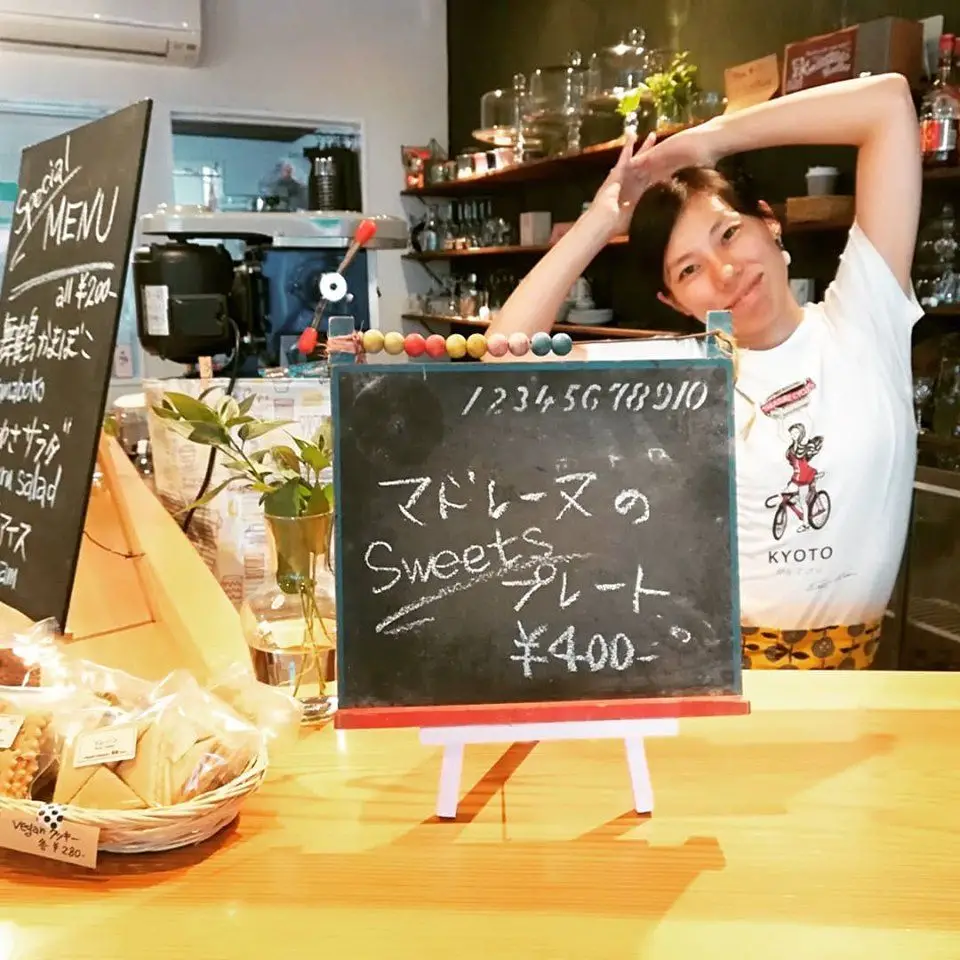 Special
MENU
all ¥200-
舞鶴かまぼこ
サラダ
salad
アイス
1 2 3 4 5 6 7 8 9 10
マドレーヌの
Sweets
プレート
¥400-
KYOTO
vegan クッキー
各 ¥280-